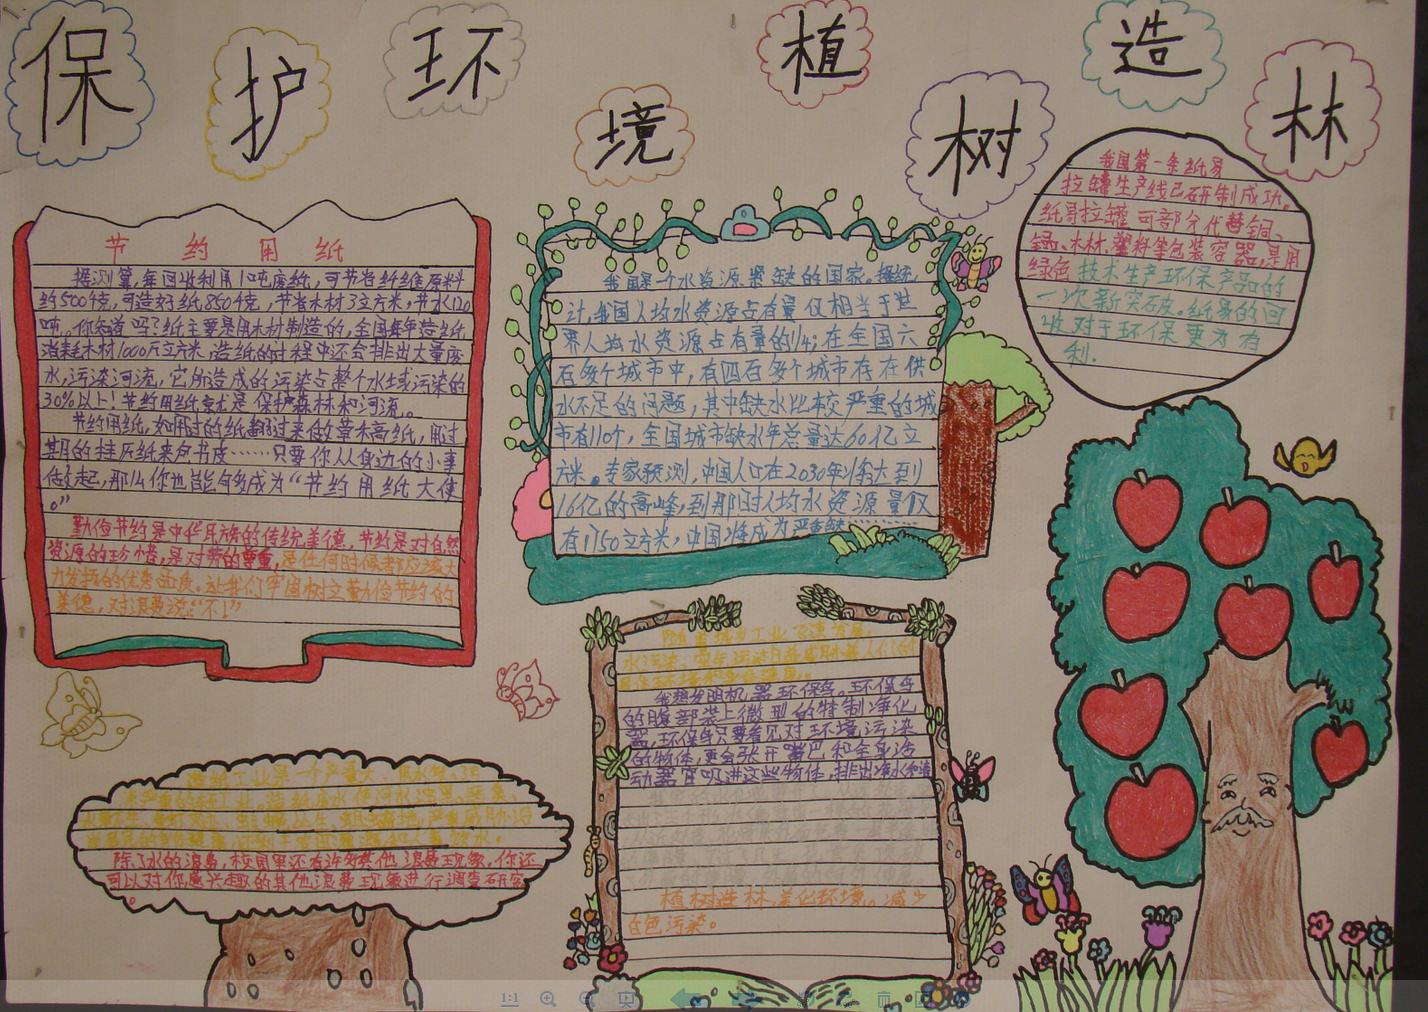 保护环境植树造林
节约用纸
据测算,每回收利用1吨废纸,可节省纤维原料
约500千克,可造好纸850千克,节省木材3立方米,节水120
吨。你知道吗?纸主要是用木材制造的,全国每年造纸
消耗木材1000万立方米,造纸的过程中还会排出大量废
水,污染河流,它所造成的污染占整个水域污染的
30%以上!节约用纸就是保护森林和河流。
节约用纸,如用过的纸翻过来做草稿纸,用过
期的挂历纸来包书皮……只要你从身边的小事
做起,那么你也能够成为“节约用纸大使
。”
勤俭节约是中华民族的传统美德,节约是对自然
资源的珍惜,是对劳动的尊重,是任何时候都应该大
力发扬的优秀品质。让我们牢固树立勤俭节约的
美德,对浪费说:“不!”
我国是一个水资源紧缺的国家。据统
计,我国人均水资源占有量仅相当于世
界人均水资源占有量的1/4;在全国六
百多个城市中,有四百多个城市存在供
水不足的问题,其中缺水比较严重的城
市有110个,全国城市缺水年总量达60亿立
方米。专家预测,中国人口在2030年将达到
16亿的高峰,到那时人均水资源量仅
有1750立方米,中国将成为严重缺
我国第一条纸易
拉罐生产线已研制成功,
纸易拉罐可部分代替铜、
铝、木材、塑料等包装容器,是用
绿色技术生产环保产品的
一次新突破。纸易的回
收对于环保更为有
利.
随着城乡工业飞速发展,
水污染、空气污染日益威胁着人们的
我想发明机器环保鸟。环保鸟
的腹部装上微型的特制净化
器,环保鸟只要看见对环境污染
的物体,便会张开嘴巴和全身活
动器官吸进这些物体,排出净水和清
植树造林,美化环境。减少
白色污染。
造纸工业是一个产量大、用水多、污
除了水的浪费,校园里还有许多其他浪费现象,你还
可以对你感兴趣的其他浪费现象进行调查研究
。
1:1